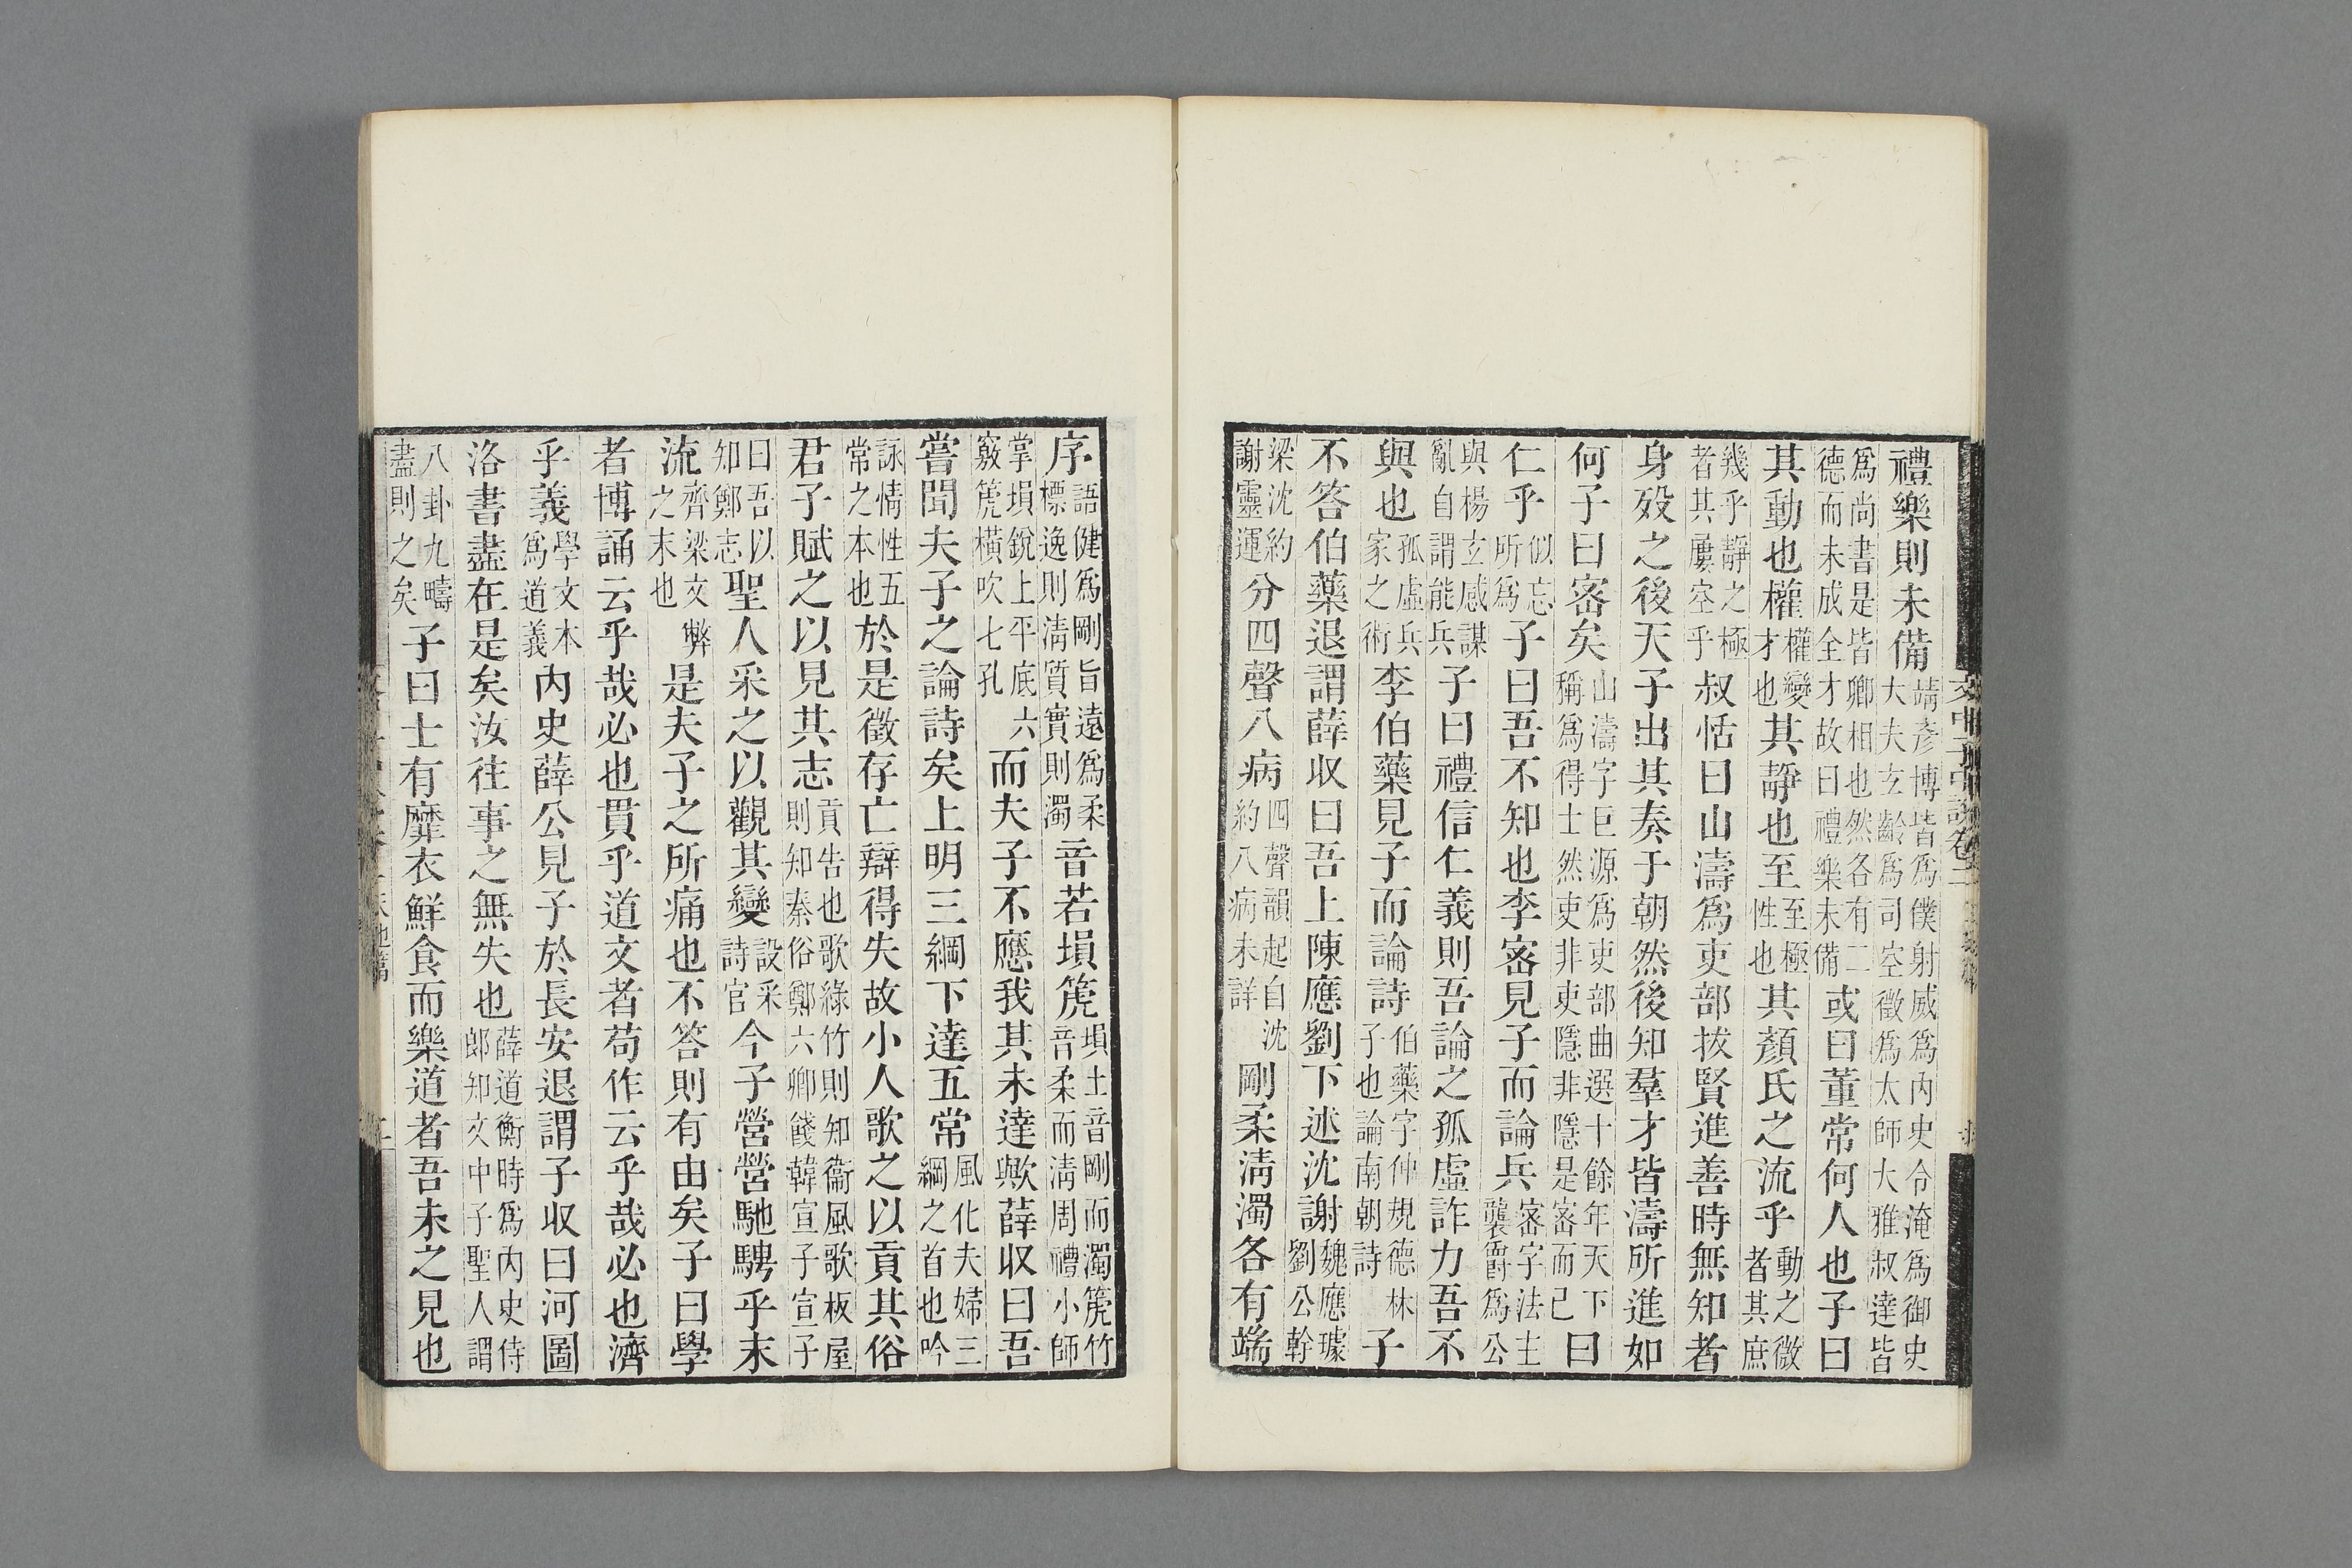 文中子中說卷二
禮樂則未備靖彥博皆爲僕射威爲內史令淹爲御史大夫玄齡爲司空徵爲太師大雅叔達皆
爲尚書是皆卿相也然各有二德而未成全才故曰禮樂未備或曰董常何人也子曰
其動也權權變才也其靜也至至極性也其顏氏之流乎動之微者其庶
幾乎靜之極者其屢空乎叔恬曰山濤爲吏部拔賢進善時無知者
身歿之後天子出其奏于朝然後知羣才皆濤所進如
何子曰密矣山濤字巨源爲吏部曲選十餘年天下稱爲得士然吏非吏隱非隱是密而已曰
仁乎似忘所爲子曰吾不知也李密見子而論兵密字法主襲爵爲公
與楊玄感謀亂自謂能兵子曰禮信仁義則吾論之孤虛詐力吾不
與也孤虛兵家之術李伯藥見子而論詩伯藥字仲規德林子也論南朝詩子
不答伯藥退謂薛收曰吾上陳應劉下述沈謝魏應璩劉公幹
梁沈約謝靈運分四聲八病四聲韻起自沈約八病未詳剛柔清濁各有端
序語健爲剛旨遠爲柔標逸則清質實則濁音若塤篪塤土音剛而濁篪竹音柔而清周禮小師
掌塤銳上平底六竅篪橫吹七孔而夫子不應我其未達歟薛收曰吾
嘗聞夫子之論詩矣上明三綱下達五常風化夫婦三綱之首也吟
詠情性五常之本也於是徵存亡辯得失故小人歌之以貢其俗
君子賦之以見其志貢告也歌綠竹則知衞風歌板屋則知秦俗鄭六卿餞韓宣子宣子
曰吾以知鄭志聖人采之以觀其變設采詩官今子營營馳騁乎末
流齊梁文弊之末也是夫子之所痛也不答則有由矣子曰學
者博誦云乎哉必也貫乎道文者苟作云乎哉必也濟
乎義學文本爲道義內史薛公見子於長安退謂子收曰河圖
洛書盡在是矣汝往事之無失也薛道衡時爲內史侍郎知文中子聖人謂
八卦九疇盡則之矣子曰士有靡衣鮮食而樂道者吾未之見也